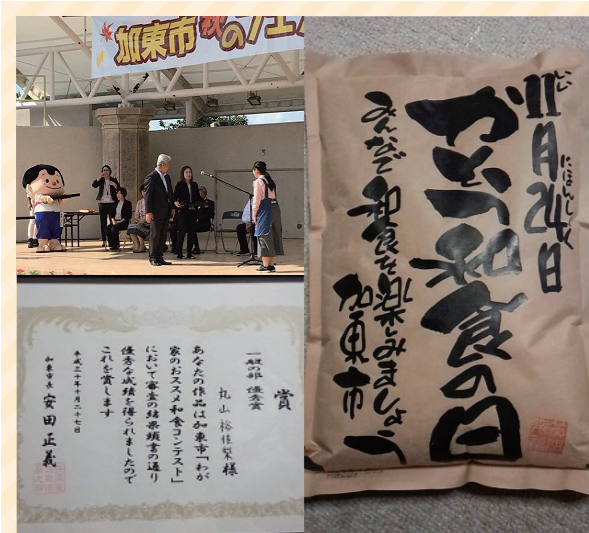 加東市秋のフェ
賞
一般の部 優秀賞
丸山 裕佳梨 様
あなたの作品は加東市「わが
家のおススメ和食コンテスト」
において審査の結果頭書の通り
優秀な成績を得られましたので
これを賞します
平成三十年十月二十七日
加東市長 安田 正義
いい にほんしょく
11月24日
かとう和食の日
みんなで和食を楽しみましょう
加東市